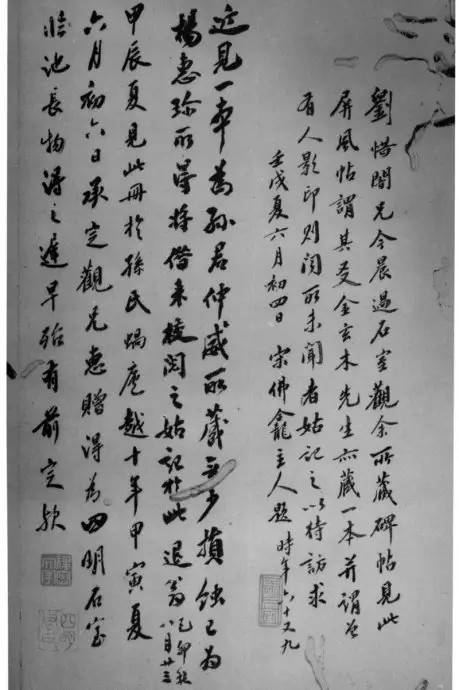 劉惜闇兄今晨過石室觀余所藏碑帖見此
屏風帖謂其友金玄木先生亦藏一本并謂曾
有人影印則聞所未聞者姑記之以待訪求
壬戌夏六月初四日 宋佛龕主人題 時年六十又九
近見一本為孫君仲威所藏少損蝕已為
楊惠珍所得將借來校閱之姑記於此 退翁 己卯秋八月廿三
甲辰夏見此冊於孫氏蝸廬越十年甲寅夏
六月初六日承定觀兄惠贈得為四明石室
臨池長物得之遲早殆有前定歟